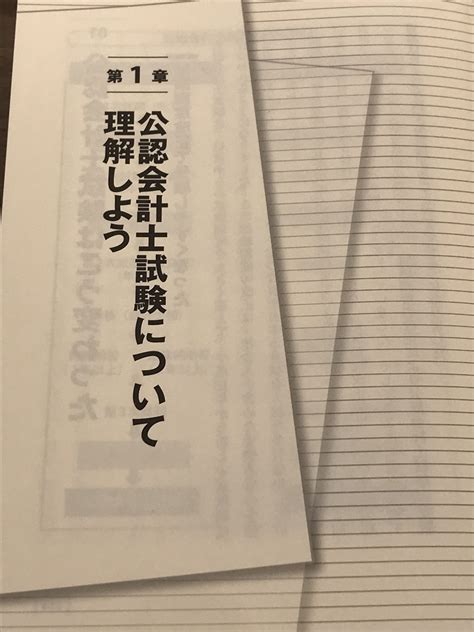 第1章
公認会計士試験について
理解しよう